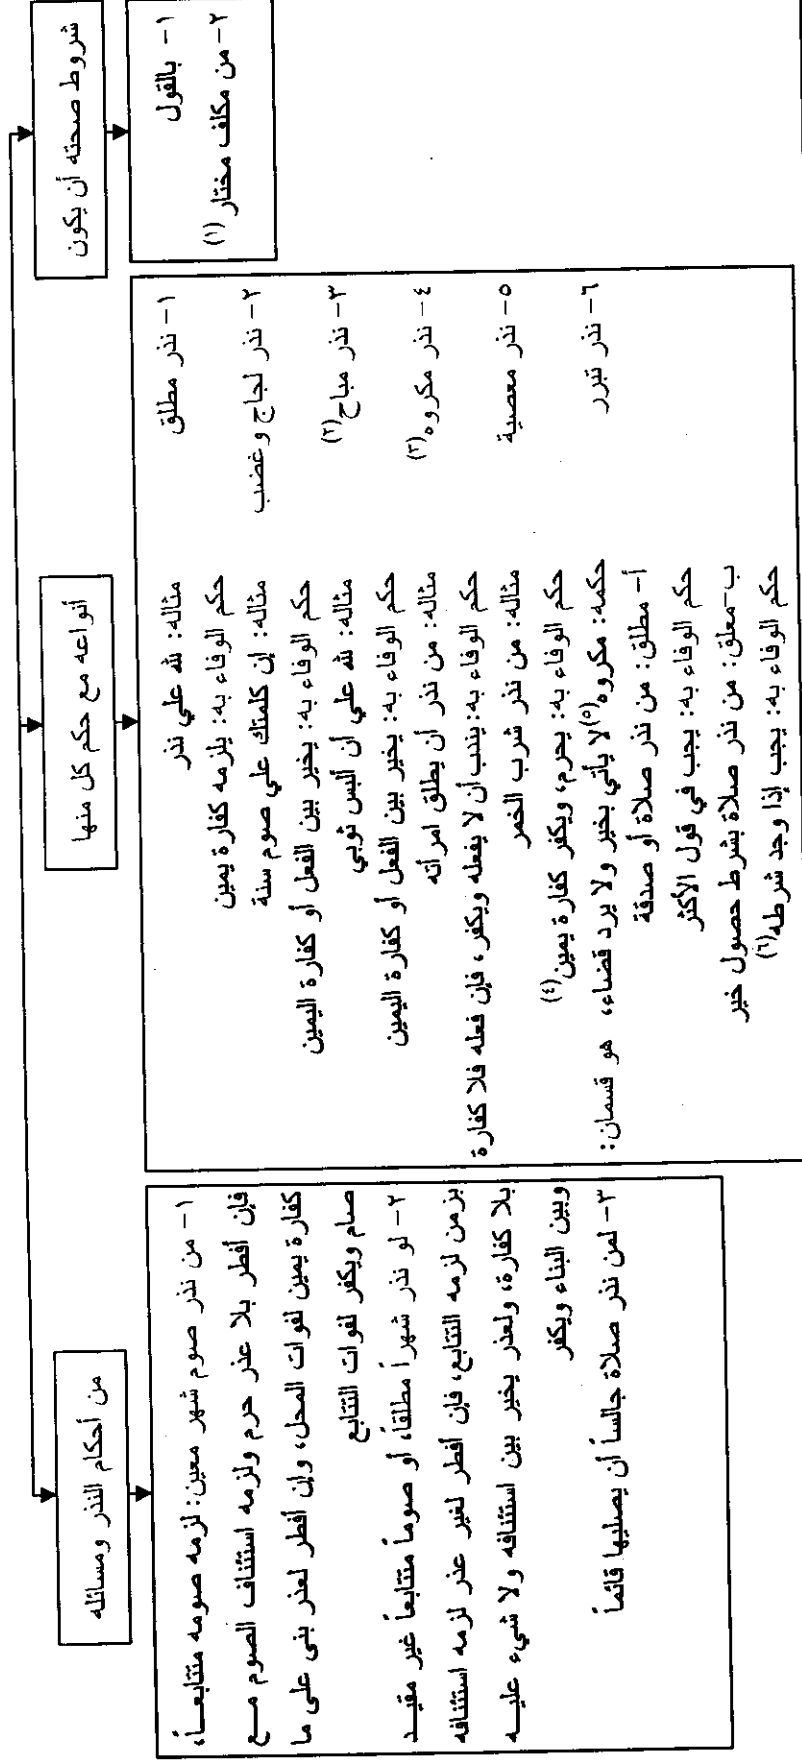 شروط صحته أن يكون
١- بالقول
٢- من مكلف مختار (١)
أنواعه مع حكم كل منها
١- نذر مطلق
مثاله: لله علي نذر
حكم الوفاء به: يلزمه كفارة يمين
٢- نذر لجاج وغضب
مثاله: إن كلمتك علي صوم سنة
حكم الوفاء به: يخير بين الفعل أو كفارة اليمين
٣- نذر مباح (٢)
مثاله: لله علي أن ألبس ثوبي
حكم الوفاء به: يخير بين الفعل أو كفارة اليمين
٤- نذر مكروه (٣)
مثاله: من نذر أن يطلق امرأته
حكم الوفاء به: يندب أن لا يفعله ويكفر، فإن فعله فلا كفارة
٥- نذر معصية
مثاله: من نذر شرب الخمر
حكم الوفاء به: يحرم، ويكفر كفارة يمين (٤)
٦- نذر تبرر
حكمه: مكروه (٥) لا يأتي بخير ولا يرد قضاء، هو قسمان:
أ- مطلق: من نذر صلاة أو صدقة
حكم الوفاء به: يجب في قول الأكثر
ب- معلق: من نذر صلاة بشرط حصول خير
حكم الوفاء به: يجب إذا وجد شرطه (٦)
من أحكام النذر ومسائله
١- من نذر صوم شهر معين: لزمه صومه متتابعاً،
فإن أفطر بلا عذر حرم ولزمه استئناف الصوم مع
كفارة يمين لفوات المحل، وإن أفطر لعذر بنى على ما
صام ويكفر لفوات التتابع
٢- لو نذر شهراً مطلقاً، أو صوماً متتابعاً غير مقيد
بزمن لزمه التتابع، فإن أفطر لغير عذر لزمه استئنافه
بلا كفارة، ولعذر يخير بين استئنافه ولا شيء عليه
وبين البناء ويكفر
٣- لمن نذر صلاة جالساً أن يصليها قائماً